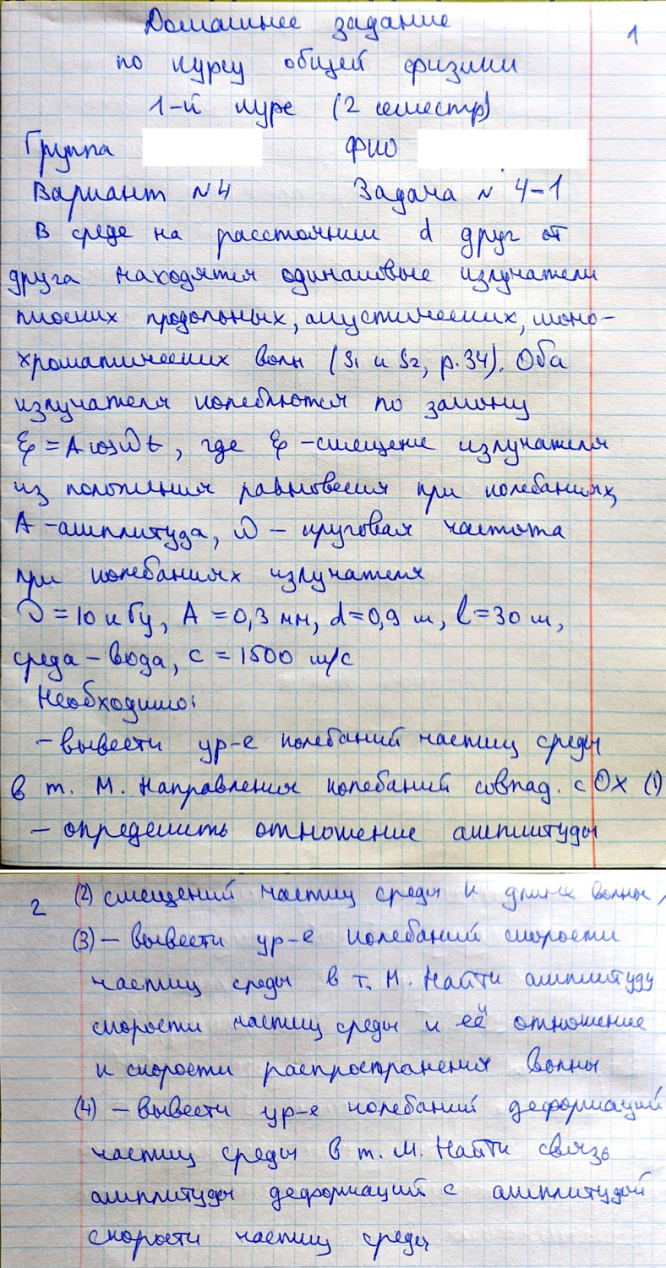 Домашнее задание
1
по курсу общей физики
1-й курс (2 семестр)
Группа ФИО
Вариант №4 Задача № 4-1
В среде на расстоянии d друг от
друга находятся одинаковые излучатели
плоских продольных, акустических, моно-
хроматических волн (S₁ и S₂, р.34). Оба
излучателя колеблются по закону
ξ = A cos ωt, где ξ - смещение излучателя
из положения равновесия при колебаниях,
А - амплитуда, ω - круговая частота
при колебаниях излучателя
ν = 10 кГц, A = 0,3 мм, d = 0,9 м, l = 30 м,
среда - вода, c = 1500 м/с
Необходимо:
- вывести ур-е колебаний частиц среды
в т. М. Направления колебаний совпад. с OX (1)
- определить отношение амплитуды
2 (2) смещений частиц среды к длине волны,
(3) - вывести ур-е колебаний скорости
частиц среды в т. М. Найти амплитуду
скорости частиц среды и её отношение
к скорости распространения волны
(4) - вывести ур-е колебаний деформаций
частиц среды в т. М. Найти связь
амплитуды деформаций с амплитудой
скорости частиц среды